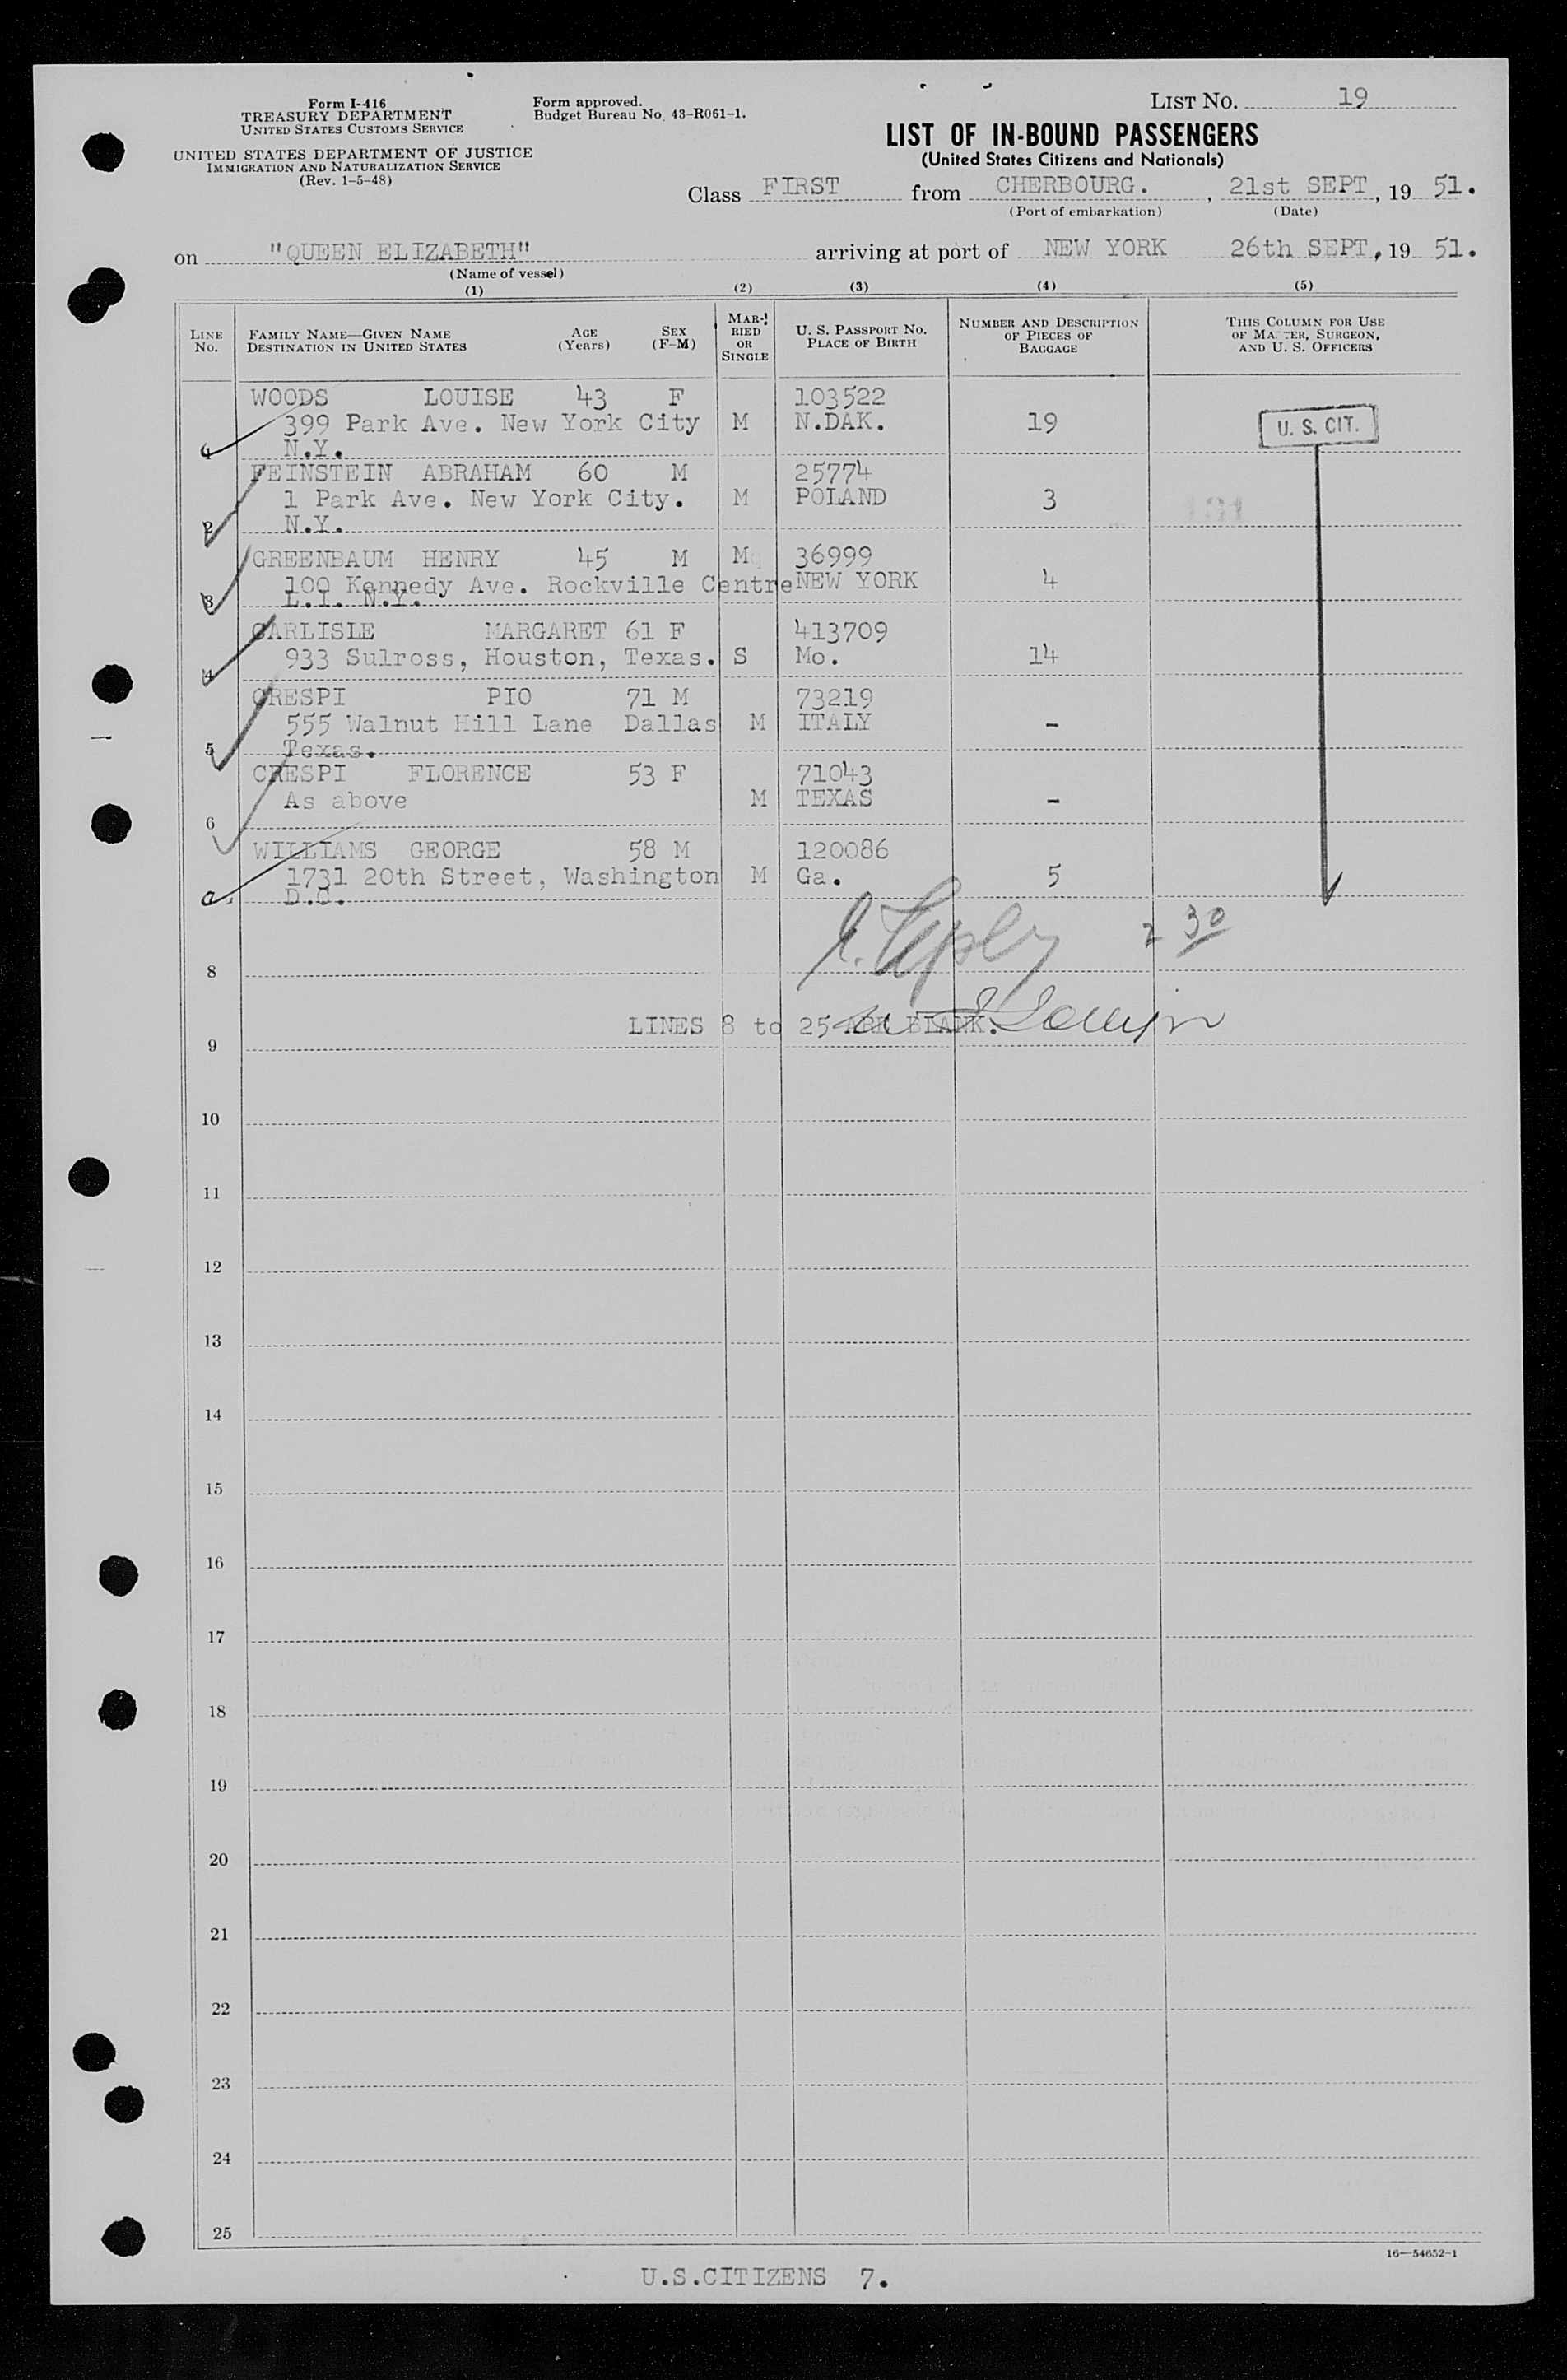 Form I-416
TREASURY DEPARTMENT
UNITED STATES CUSTOMS SERVICE
UNITED STATES DEPARTMENT OF JUSTICE
IMMIGRATION AND NATURALIZATION SERVICE
(Rev. 1-5-48)
Form approved.
Budget Bureau No. 43-R061-1.
LIST NO. 19
LIST OF IN-BOUND PASSENGERS
(United States Citizens and Nationals)
Class FIRST from CHERBOURG. , 21st SEPT , 19 51.
(Port of embarkation) (Date)
on "QUEEN ELIZABETH" arriving at port of NEW YORK 26th SEPT, 19 51.
(Name of vessel)
(1) (2) (3) (4) (5)
LINE NO.
FAMILY NAME—GIVEN NAME AGE SEX
DESTINATION IN UNITED STATES (Years) (F-M)
MARRIED OR SINGLE
U. S. PASSPORT NO.
PLACE OF BIRTH
NUMBER AND DESCRIPTION
OF PIECES OF
BAGGAGE
THIS COLUMN FOR USE
OF MASTER, SURGEON,
AND U. S. OFFICERS
WOODS LOUISE 43 F 103522
399 Park Ave. New York City M N.DAK. 19 U. S. CIT.
N.Y.
FEINSTEIN ABRAHAM 60 M 25774
1 Park Ave. New York City. M POLAND 3
2 N.Y.
GREENBAUM HENRY 45 M M 36999
100 Kennedy Ave. Rockville Centre NEW YORK 4
3 L.I. N.Y.
CARLISLE MARGARET 61 F 413709
933 Sulross, Houston, Texas. S Mo. 14
4
CRESPI PIO 71 M 73219
555 Walnut Hill Lane Dallas M ITALY -
5 Texas.
CRESPI FLORENCE 53 F 71043
As above M TEXAS -
6
WILLIAMS GEORGE 58 M 120086
1731 20th Street, Washington M Ga. 5
D.C.
2 30
8
LINES 8 to 25 ARE BLANK.
9
10
11
12
13
14
15
16
17
18
19
20
21
22
23
24
25
16—54652-1
U.S.CITIZENS 7.